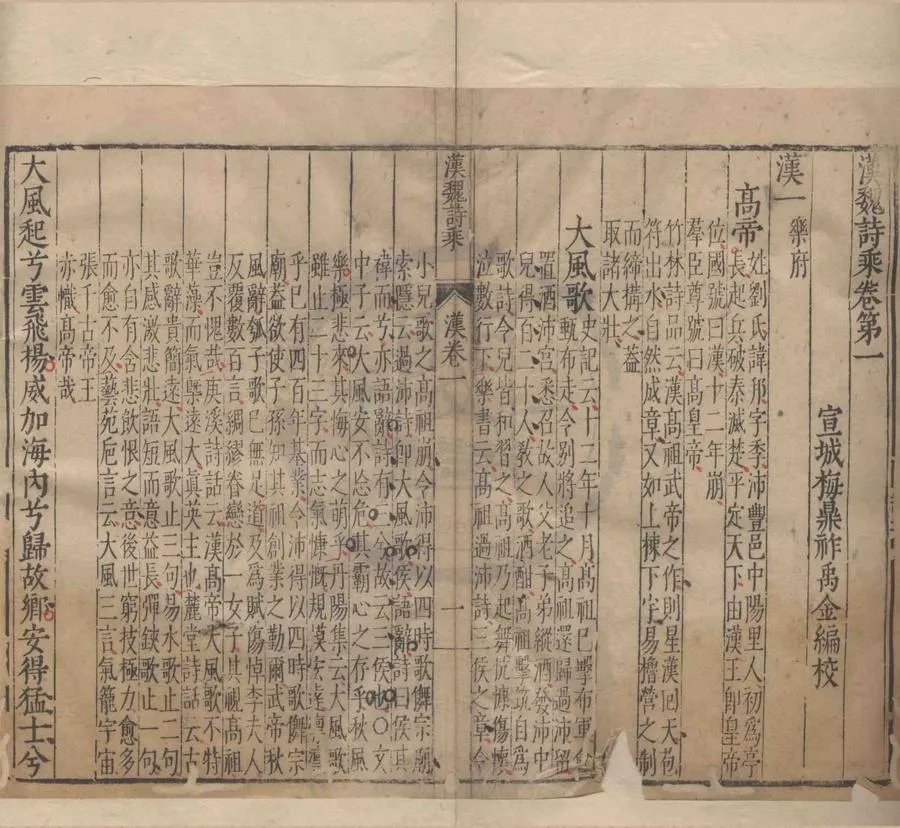 漢魏詩乘卷第一
宣城梅鼎祚禹金編校
漢一 樂府
高帝
姓劉氏諱邦字季沛豐邑中陽里人初為亭
長起兵破秦滅楚平定天下由漢王即皇帝
位國號曰漢十二年崩
羣臣尊號曰高皇帝
竹林詩品云漢高祖武帝之作則星漢回天苞
符出水自然成章又如上棟下宇易橧營之制
而締構之益
取諸大壯
大風歌
史記云十二年十月高祖已擊布軍會
甀布走令别將追之高祖還歸過沛留
置酒沛宫悉召故人父老子弟縱酒發沛中
兒得百二十人敎之歌酒酣高祖擊筑自為
歌詩令兒皆和習之高祖乃起舞忼慨傷懷
泣數行下樂書云高祖過沛詩三侯之章令
漢魏詩乘 漢卷一 一
小兒歌之高祖崩令沛得以四時歌儛宗廟
索隱云過沛詩即大風歌侯語辭詩曰侯其
禕而兮亦語辭詩有三兮故云三侯〇文
中子云大風安不忘危其霸心之存乎秋風
樂極悲來其悔心之萌乎丹陽集云大風歌
雖止二十三字而志氣慷慨規模宏遠凜凜
乎已有四百年基業今沛得以四時歌儛宗
廟益欲使子孫知其祖創業之勤爾武帝秋
風辭瓠子歌已無足道及為賦傷悼李夫人
反覆數百言綢繆眷戀於一女子其視高祖
豈不愧哉庚溪詩話云漢高帝大風歌不特
華藻而氣槩遠大真英主也麓堂詩話云古
歌辭貴簡遠大風歌止三句易水歌止二句
其感激悲壯語短而意益長彈鋏歌止一句
亦自有含悲飲恨之意後世窮技極力愈多
而愈不及藝苑巵言云大風三言氣籠宇宙
張千古帝王
赤幟高帝哉
大風起兮雲飛揚威加海内兮歸故鄉安得猛士兮